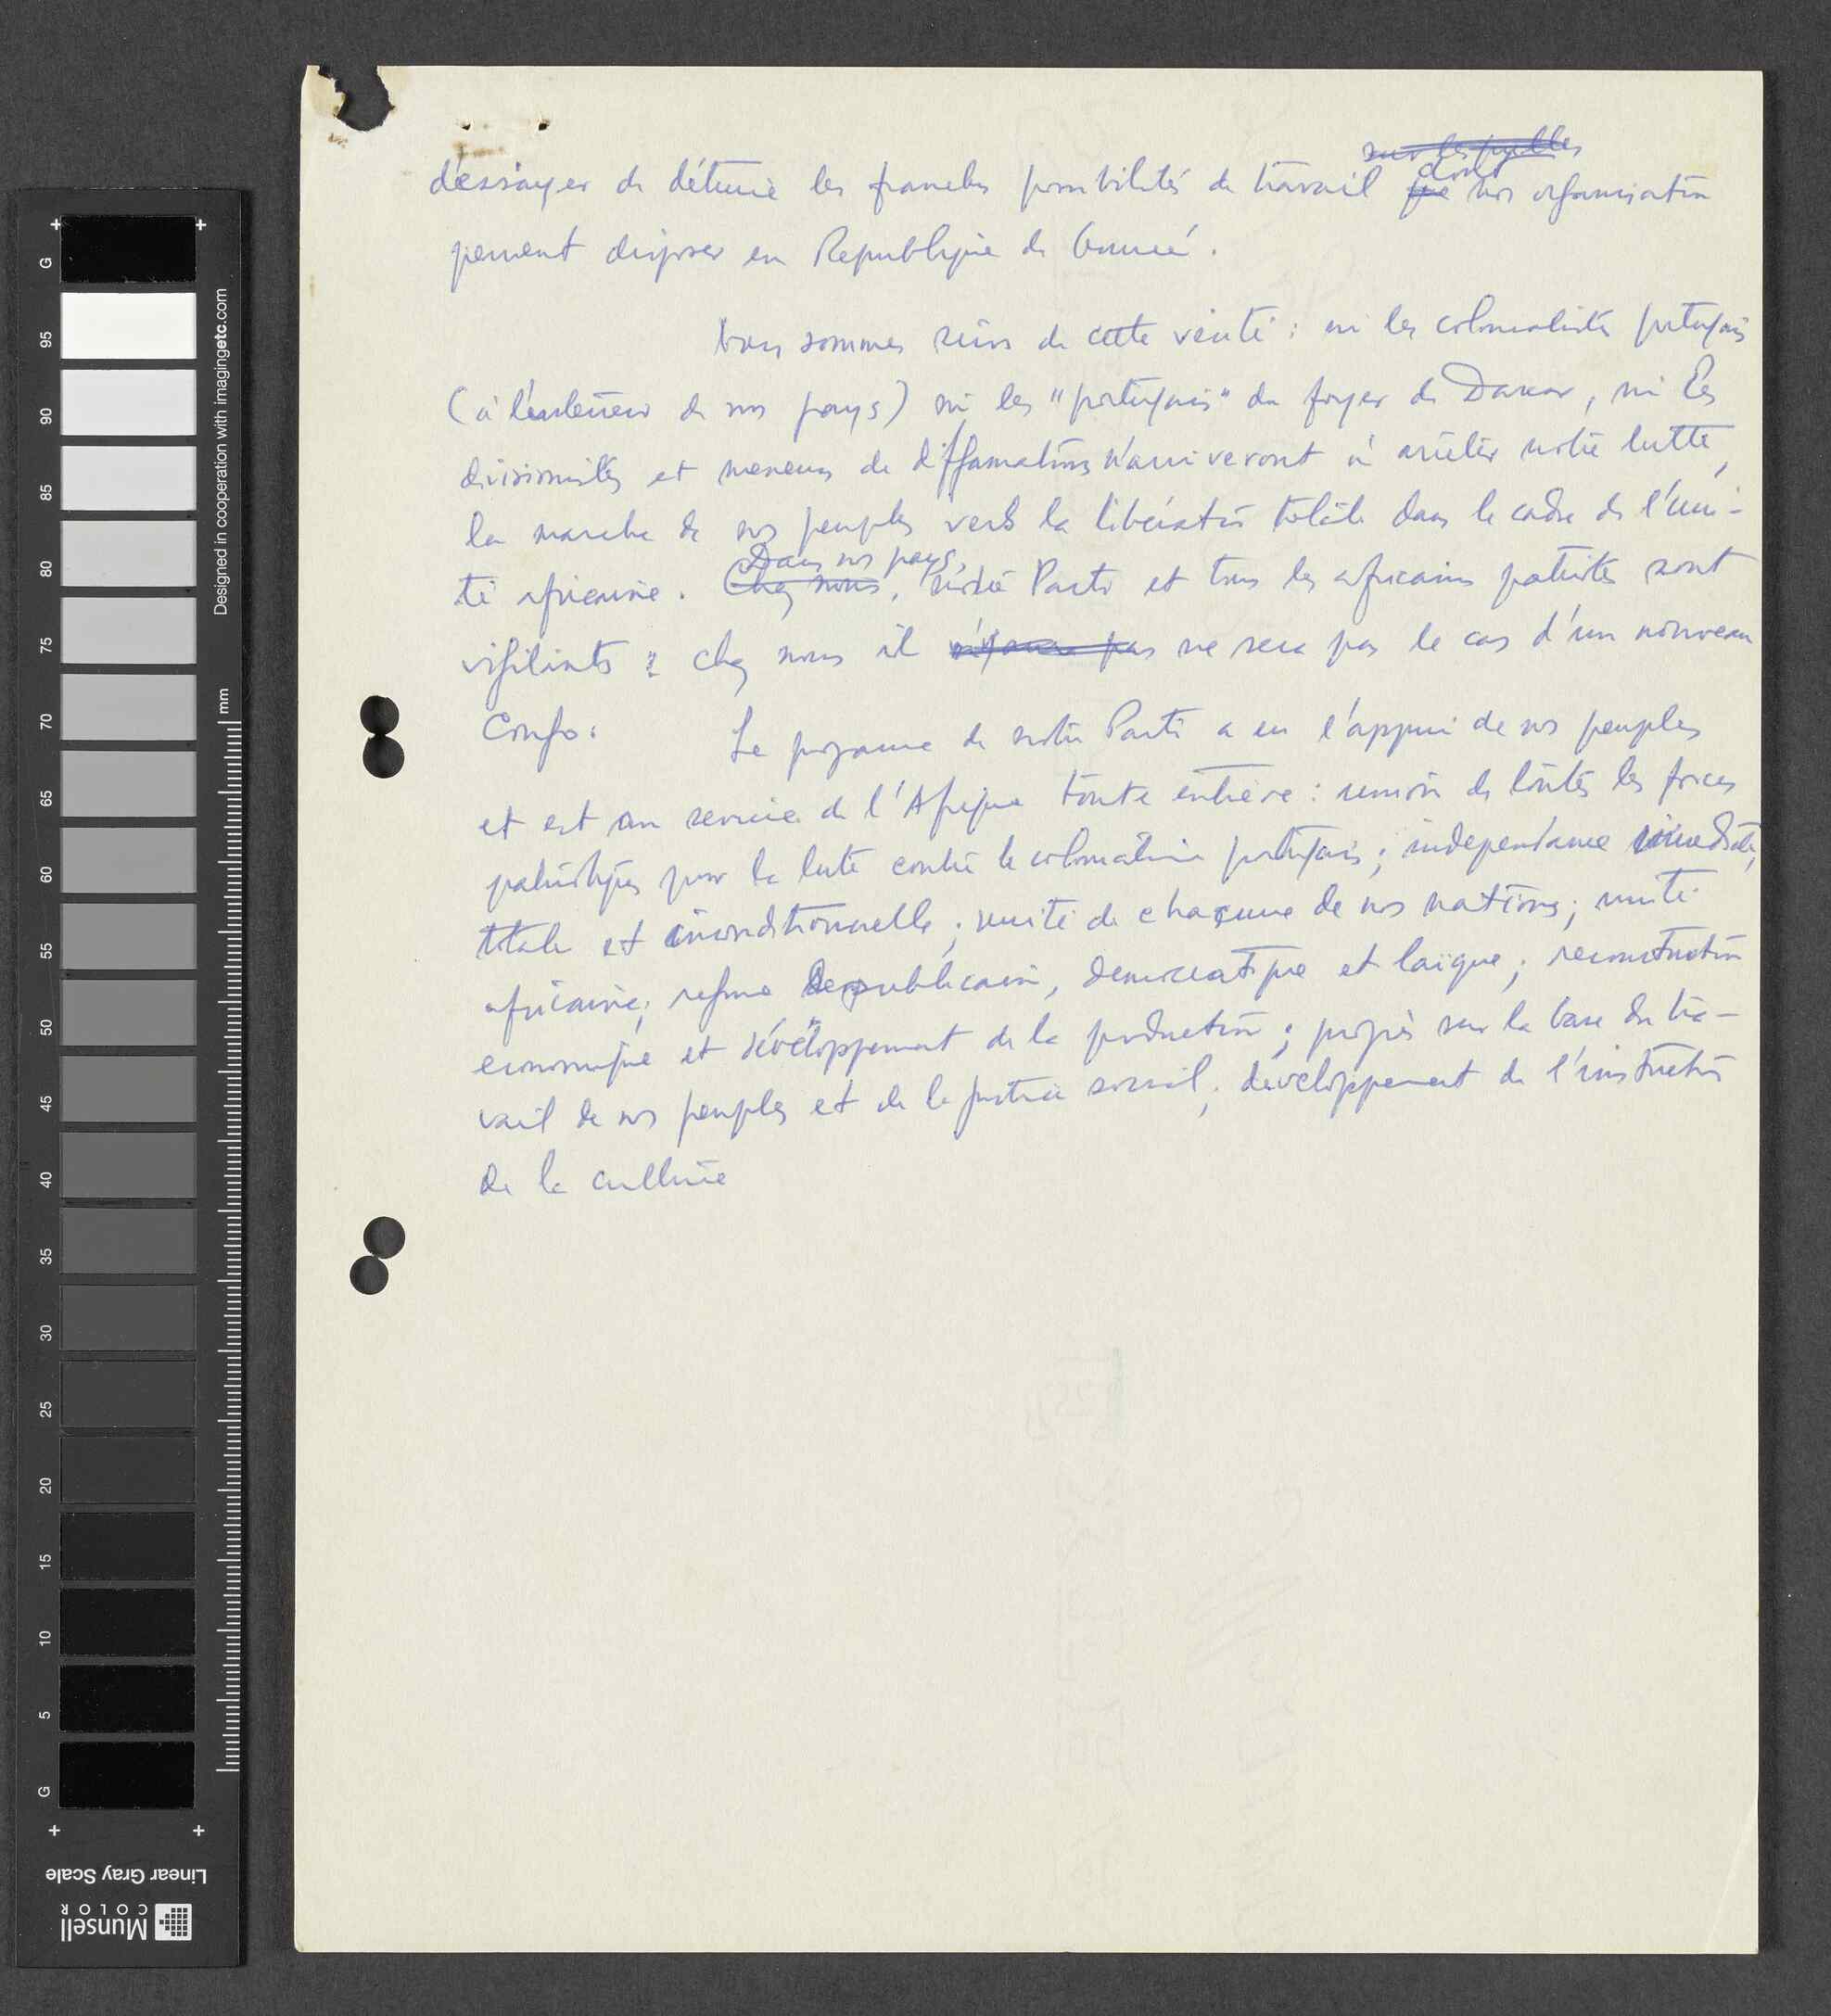 d'essayer de détruire les franches possibilités de travail dont nos organisation
peuvent disposer en Republique de Guinée.
Nous sommes sûrs de cette vérité: ni les colonialistes portugais
(à l'exterieur de nos pays) ni les "portugais" du foyer de Dakar, ni les
divisionistes et meneurs de diffamations n'arriveront à arrêter notre lutte,
la marche de nos peuples vers la libération totale dans le cadre de l'uni-
té africaine. Dans nos pays, notre Parti et tous les africains patriotes sont
vigilants: chez nous il ne sera pas le cas d'un nouveau
Congo.
Le programe de notre Parti a eu l'appui de nos peuples
et est au service de l'Afrique toute entière: union de toutes les forces
patriotiques pour la lutte contre le colonialisme portugais; independance immediate,
totale et inconditionnelle; unité de chacune de nos nations; unité
africaine; regime republicain, democratique et laïque; reconstruction
economique et développement de la production; progrès sur la base du tra-
vail de nos peuples et de la justice social; developpement de l'instruction
de la culture
G 95 90 85 80 75 70 65 60 55 50 45 40 35 30 25 20 15 10 5 G
mm
Designed in cooperation with imagingetc.com
Linear Gray Scale
Munsell
COLOR